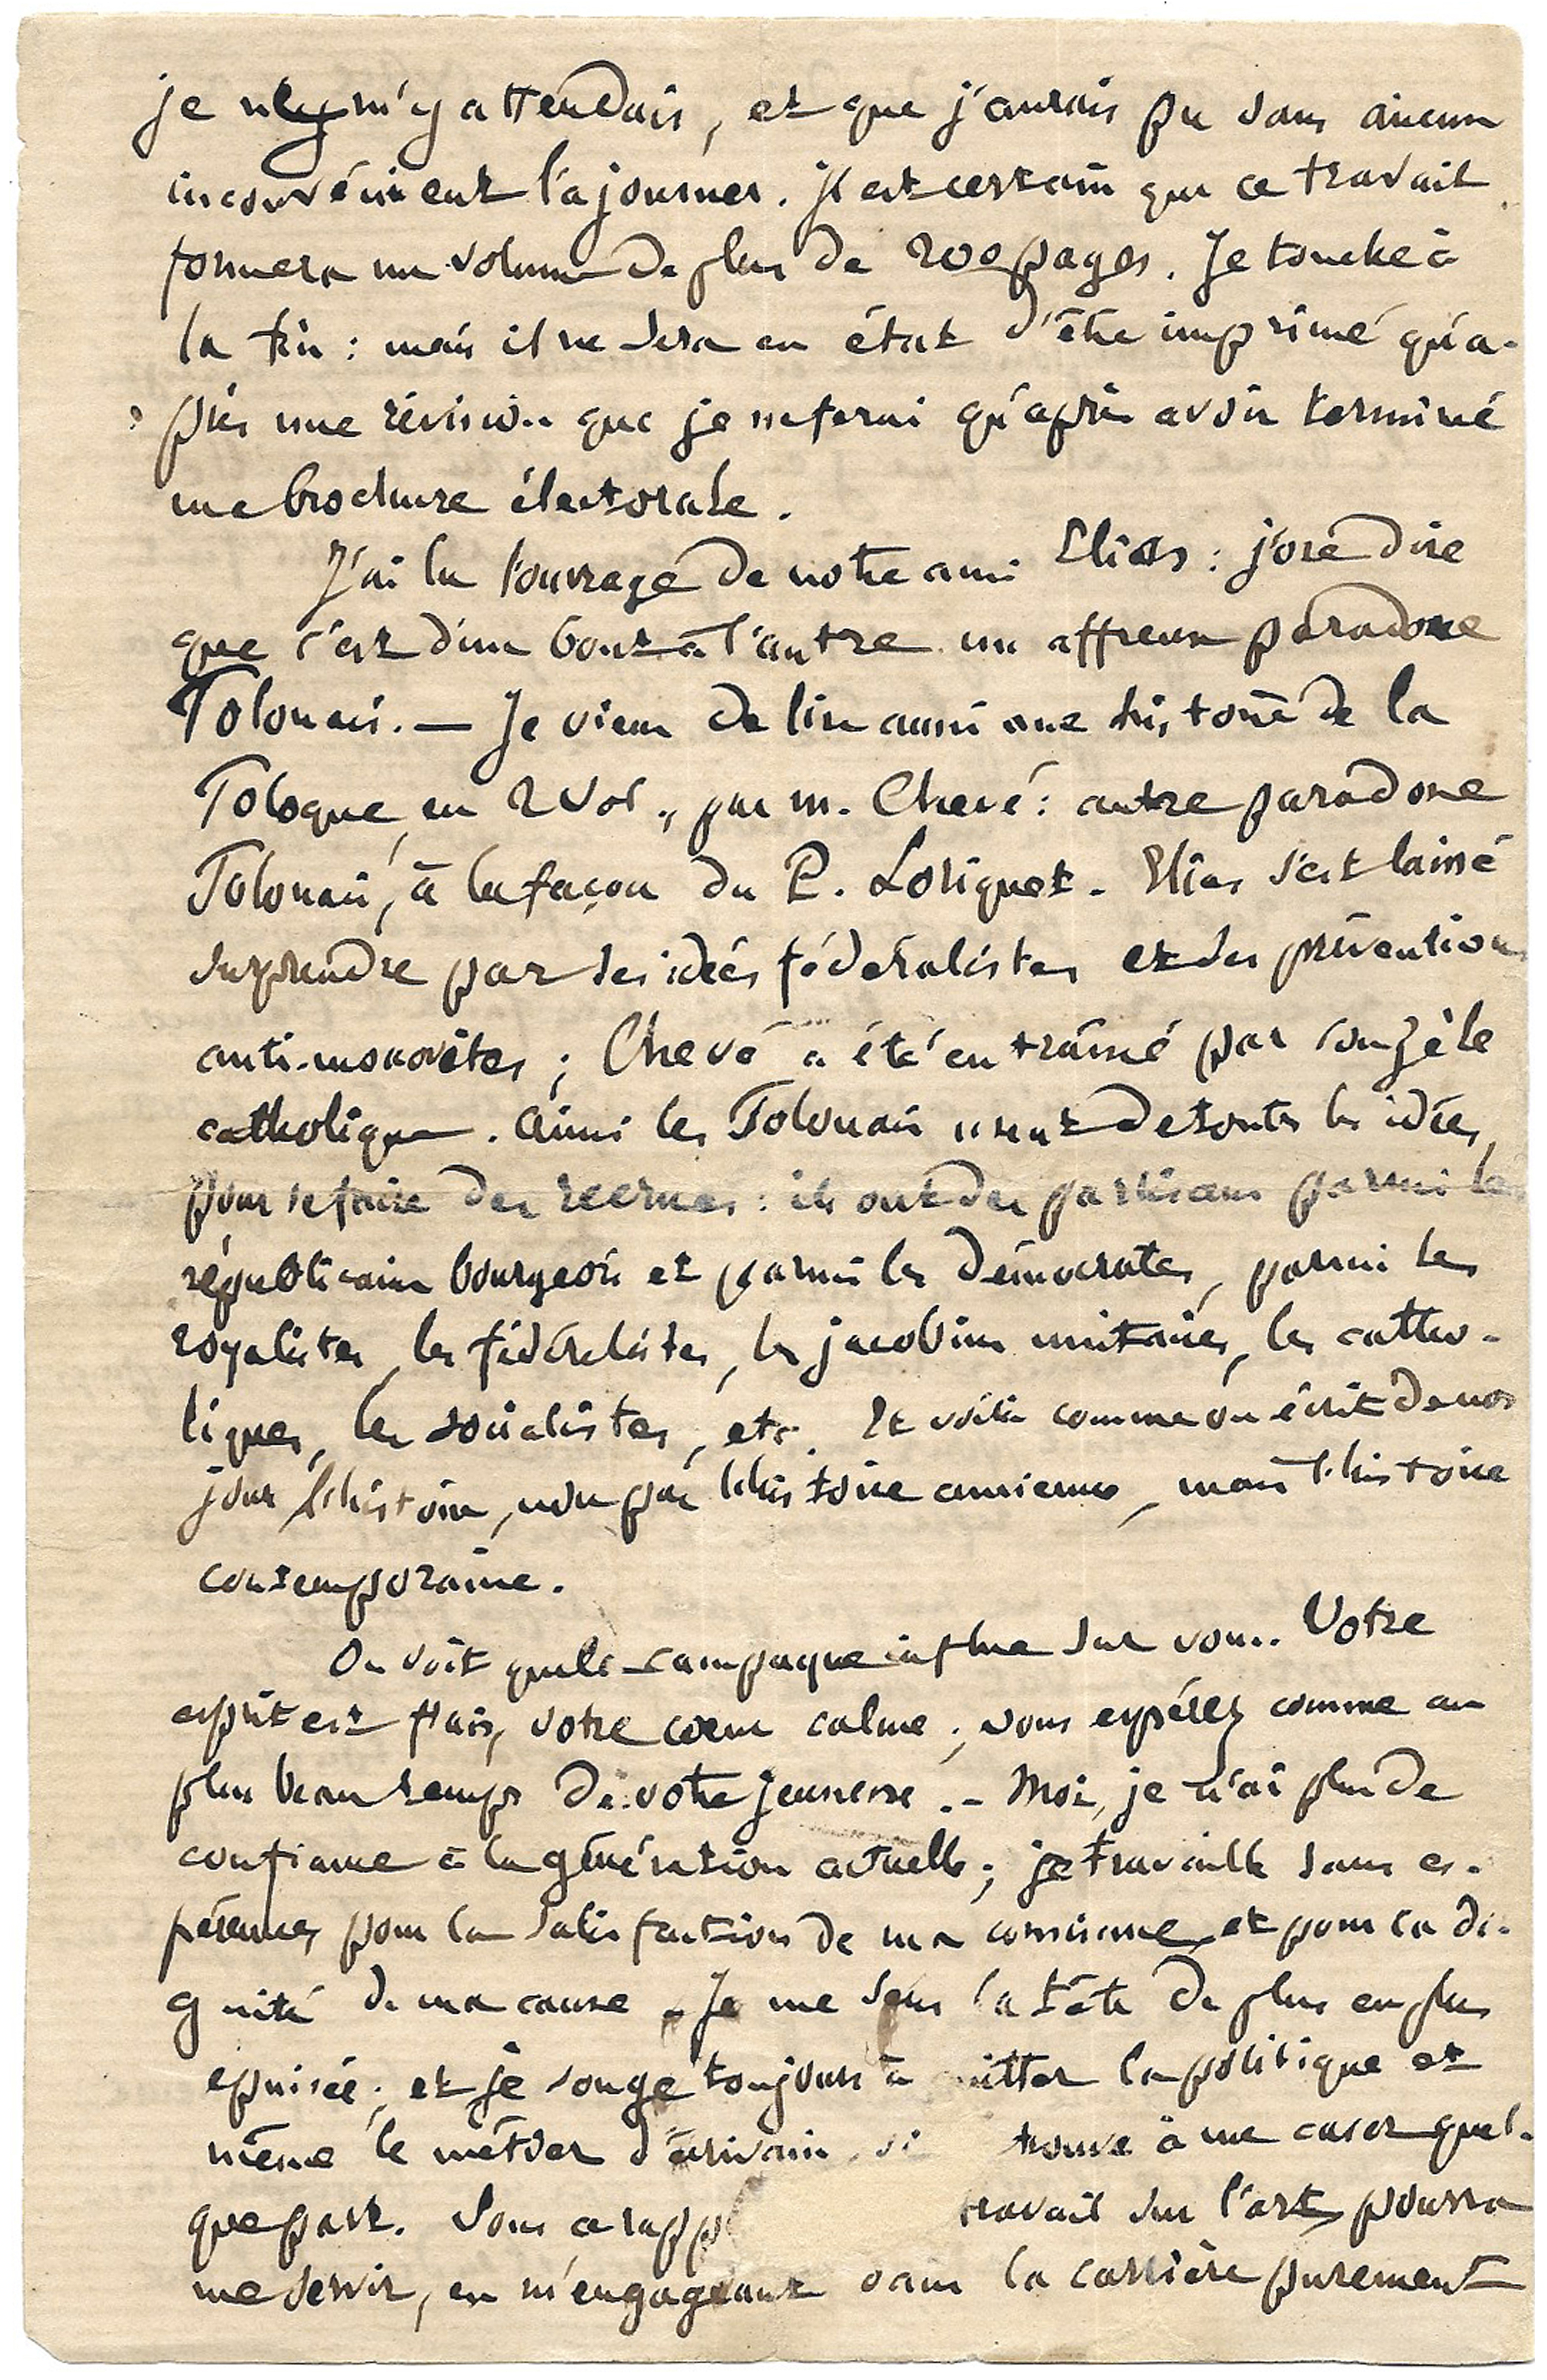 je m'y attendais, et que j'aurais pu sans aucun
inconvénient l'ajourner. Il est certain que ce travail
formera un volume de plus de 200 pages. Je touche à
la fin : mais il ne sera en état d'être imprimé qu'a-
près une révision que je ne ferai qu'après avoir terminé
ma brochure électorale.
J'ai lu l'ouvrage de notre ami Elias : j'ose dire
que c'est d'un bout à l'autre un affreux paradoxe
Polonais. — Je viens de lire aussi une histoire de la
Pologne, en 2 vol., par M. Chevé : autre paradoxe
Polonais, à la façon du P. Loriquet. Elias s'est laissé
surprendre par ses idées fédéralistes et ses préventions
anti-moscovites ; Chevé a été entraîné par son zèle
catholique. Ainsi les Polonais usent de toutes les idées,
pour se faire des recrues : ils ont des partisans parmi les
républicains bourgeois et parmi les démocrates, parmi les
royalistes, les fédéralistes, les jacobins unitaires, les catho-
liques, les socialistes, etc. Et voilà comme on écrit de nos
jours l'histoire, non pas l'histoire ancienne, mais l'histoire
contemporaine.
On voit que la campagne influe sur vous. Votre
esprit est frais, votre cœur calme ; vous espérez comme au
plus beau temps de votre jeunesse. — Moi, je n'ai plus de
confiance à la génération actuelle ; je travaille sans es-
pérances, pour la satisfaction de ma conscience et pour la di-
gnité de ma cause. Je me sens la tête de plus en plus
épuisée ; et je songe toujours à quitter la politique et
même le métier d'écrivain, si trouve à me caser quel-
que part. Sous ce rapp travail sur l'art, pourra
me servir, en m'engageant dans la carrière purement